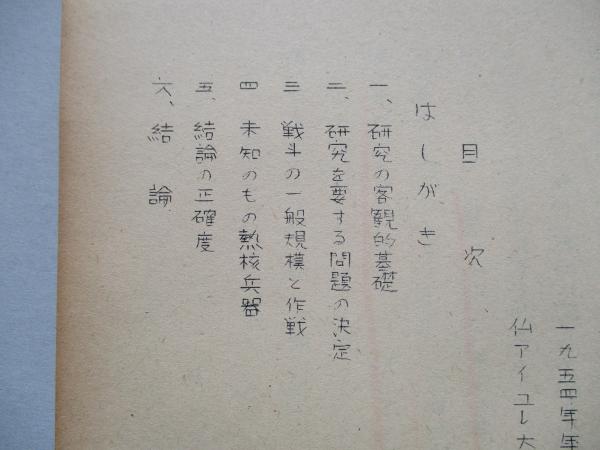 一九五四年年
仏アイユレ大
目次
はしがき
一、研究の客観的基礎
二、研究を要する問題の決定
三 戦斗の一般規模と作戦
四 未知のもの熱核兵器
五、結論の正確度
六、結論